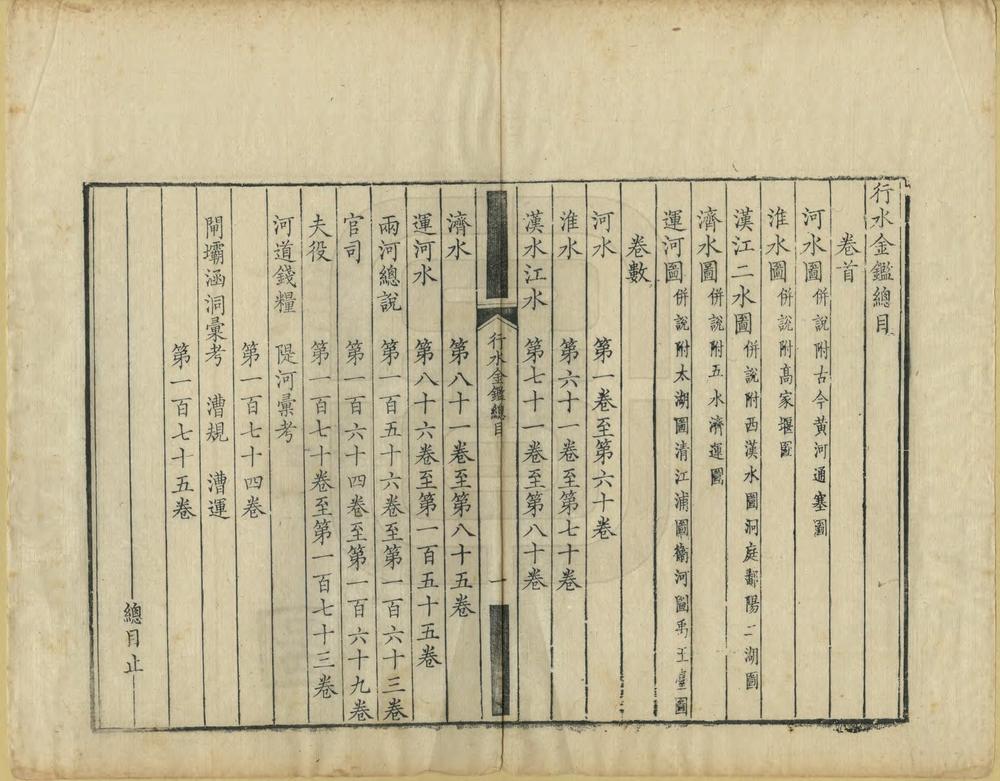 行水金鑑總目
卷首
河水圖 併說附古今黃河通塞圖
淮水圖 併說附高家堰圖
漢江二水圖 併說附西漢水圖洞庭鄱陽二湖圖
濟水圖 併說附五水濟運圖
運河圖 併說附太湖圖清江浦圖衞河圖禹王臺圖
卷數
河水 第一卷至第六十卷
淮水 第六十一卷至第七十卷
漢水江水 第七十一卷至第八十卷
行水金鑑總目 一
濟水 第八十一卷至第八十五卷
運河水 第八十六卷至第一百五十五卷
兩河總說 第一百五十六卷至第一百六十三卷
官司 第一百六十四卷至第一百六十九卷
夫役 第一百七十卷至第一百七十三卷
河道錢糧 隄河彙考
第一百七十四卷
閘壩涵洞彙考 漕規 漕運
第一百七十五卷
總目止